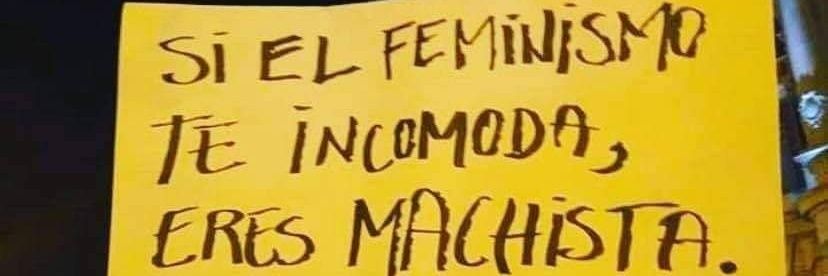 Si EL FEMiNiSMO
TE iNCOMODA,
ERES MACHiSTA.